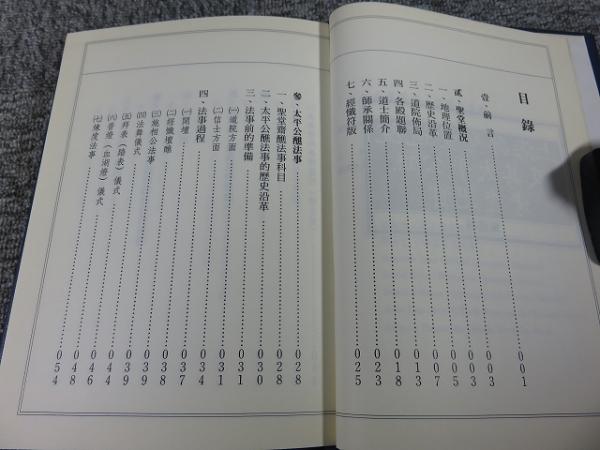 目錄
壹、前言……001
貳、聖堂概況……003
一、地理位置……003
二、歷史沿革……005
三、道院佈局……007
四、各殿題聯……013
五、道士簡介……018
六、師承關係……023
七、經懺符版……025
參、太平公醮法事……028
一、聖堂齋醮法事科目……028
二、太平公醮法事的歷史沿革……030
三、法事前的準備……031
㈠道院方面……031
㈡信士方面……031
四、法事過程……034
㈠開壇……037
㈡經懺壇醮……038
㈢施相公法事……039
㈣法舞儀式……039
㈤拜表（踏表）儀式……044
㈥普燈（血湖燈）儀式……046
㈦煉度法事……048
054